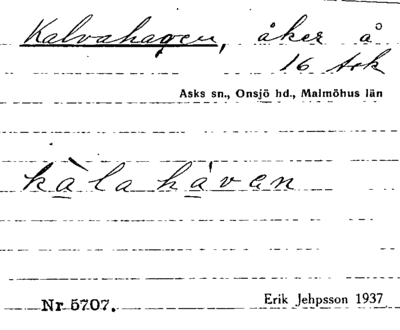 Kalvahagen, åker å
16 Ask
Asks sn., Onsjö hd., Malmöhus län
kàlahávan
Nr 5707.
Erik Jehpsson 1937